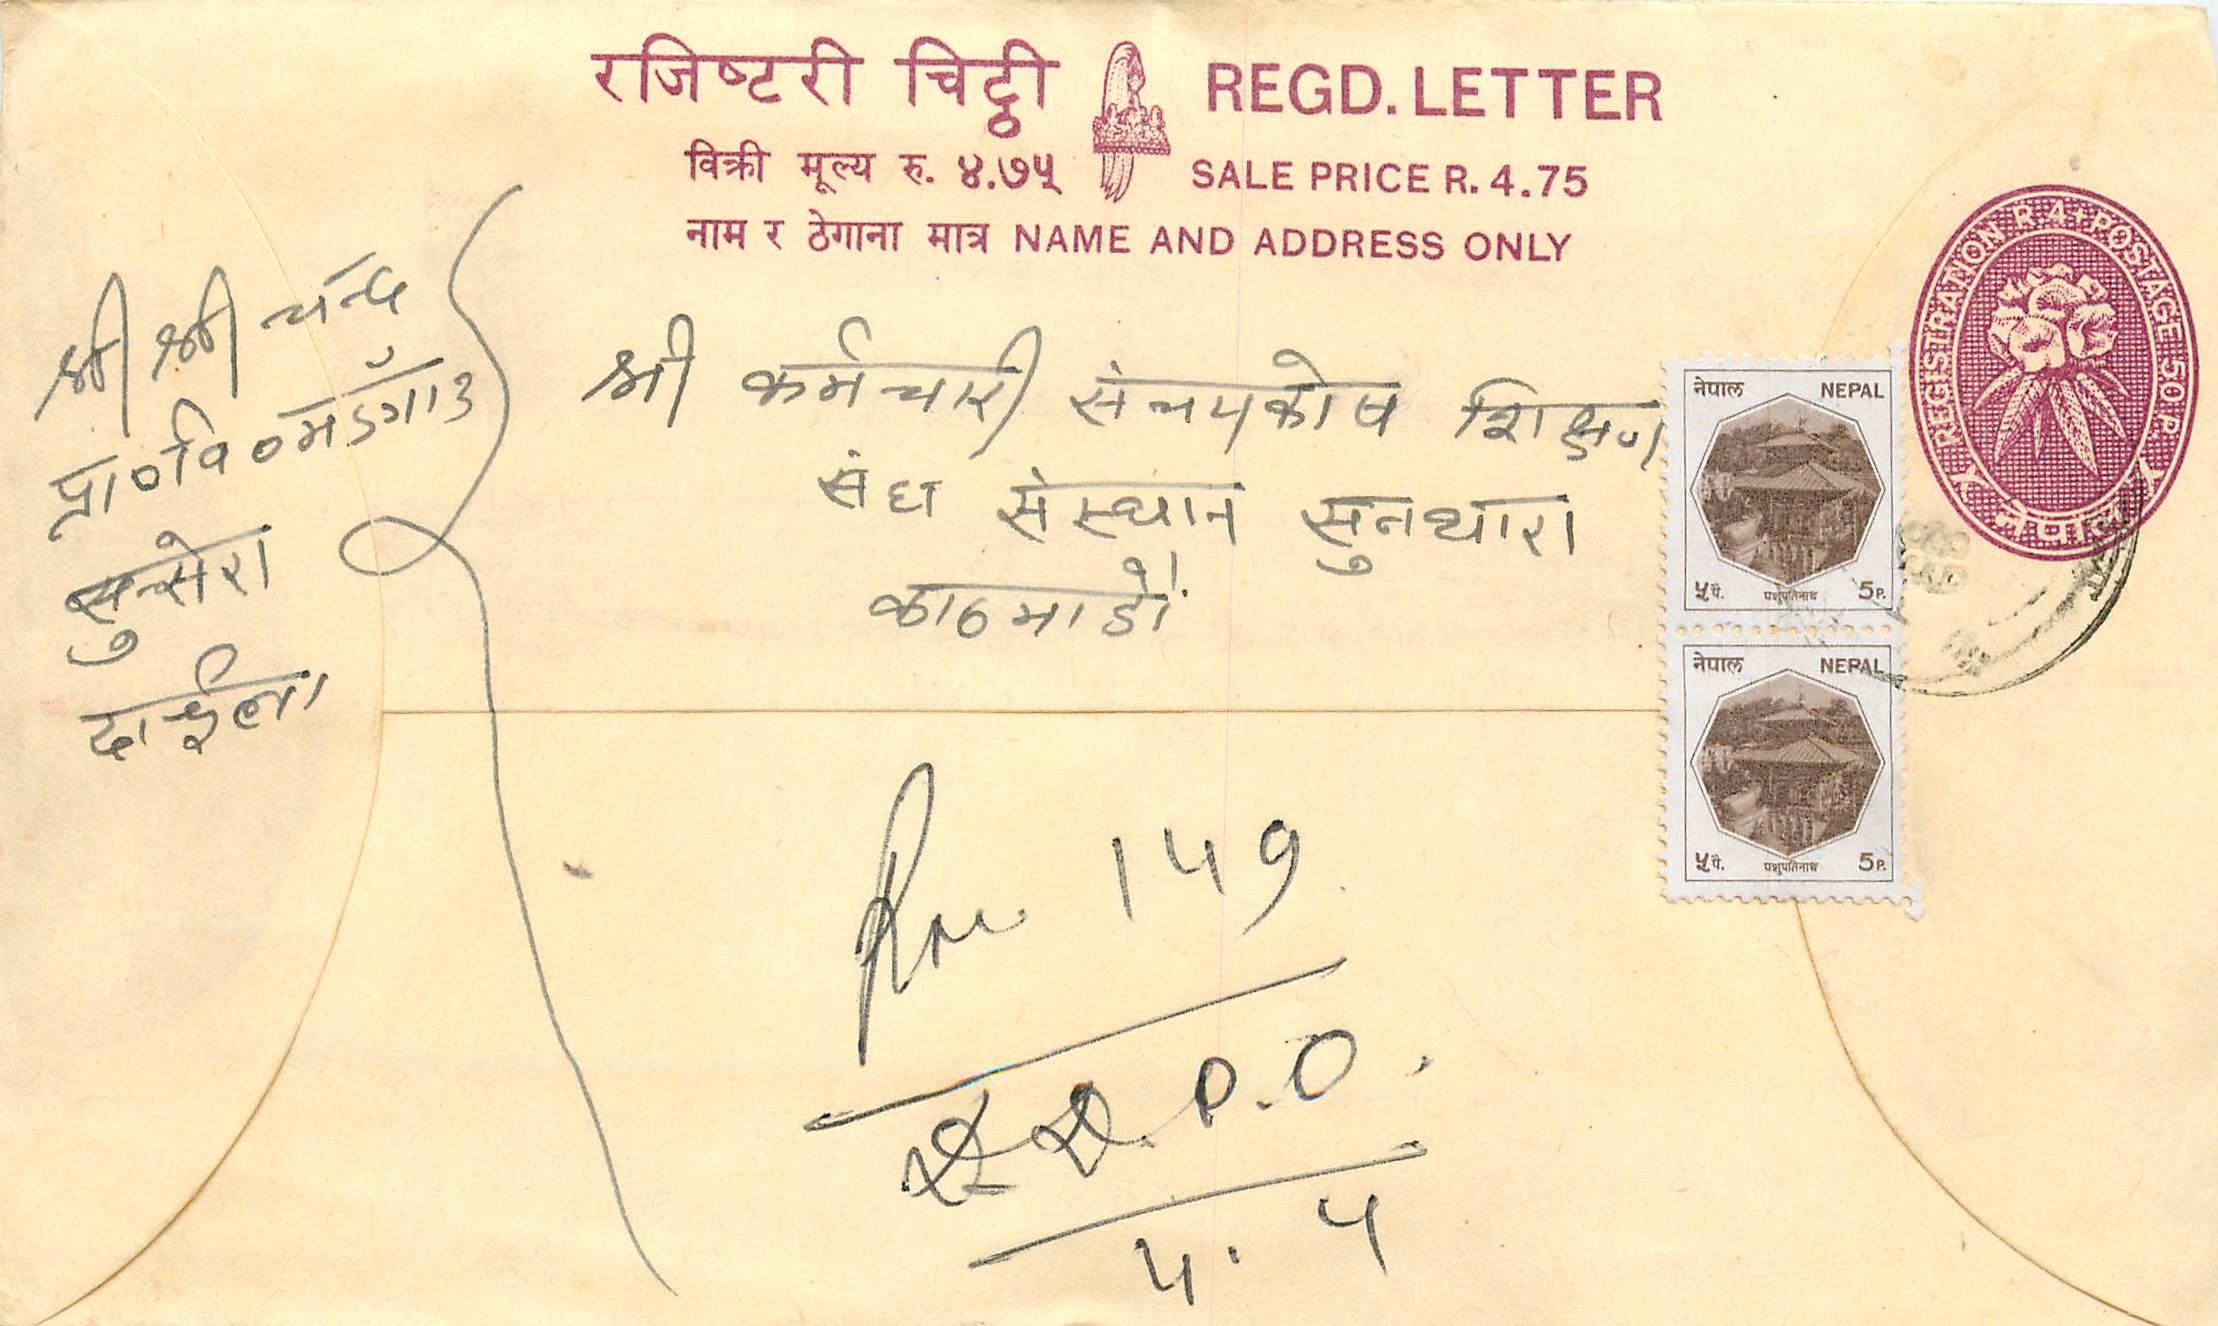 रजिष्टरी चिट्ठी REGD. LETTER
विक्री मूल्य रु. ४.७५ SALE PRICE R. 4.75
नाम र ठेगाना मात्र NAME AND ADDRESS ONLY
REGISTRATION R.4+POSTAGE 50 P.
नेपाल
श्री श्री चन्द
प्रा०वि०मडँगाउ
सुन्सेरा
दार्चुला
श्री कर्मचारी संचयकोष शिक्षण
संघ संस्थान सुनधारा
काठमाडौं
नेपाल NEPAL
५ पै. पशुपतिनाथ 5 P.
नेपाल NEPAL
५ पै. पशुपतिनाथ 5 P.
149
P.O.